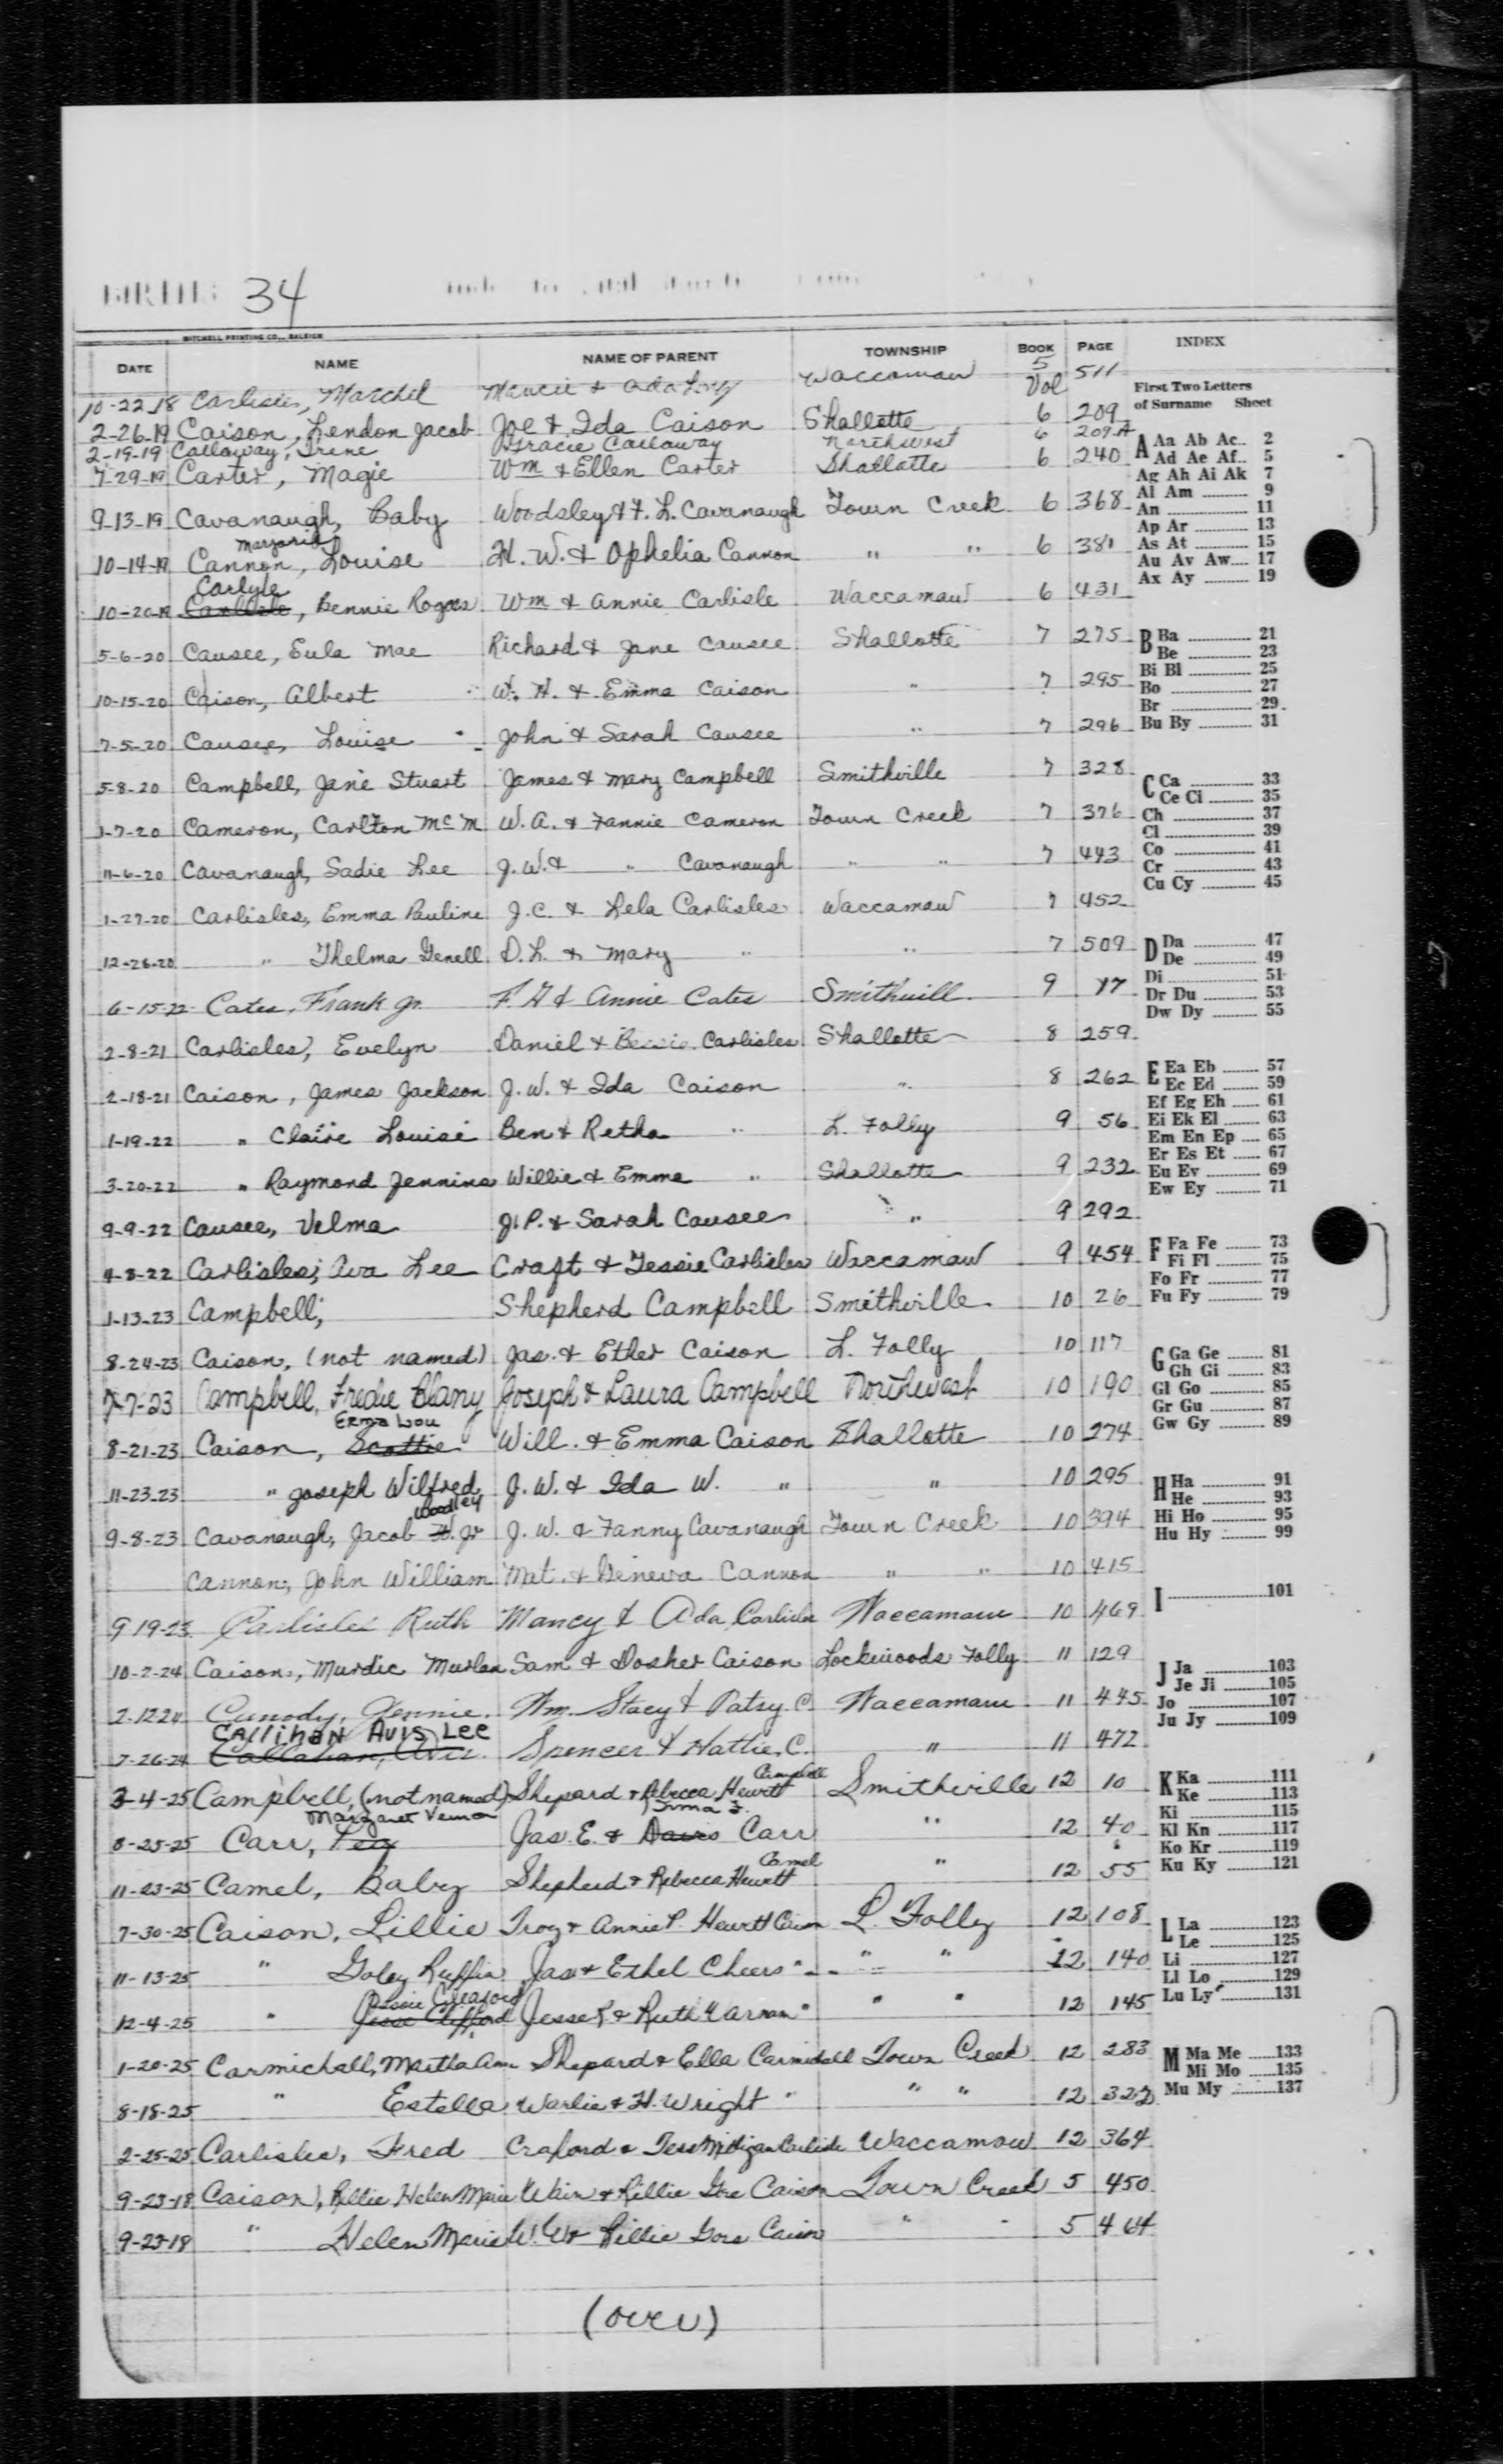 BIRTHS 34
MITCHELL PRINTING CO., RALEIGH
DATE NAME NAME OF PARENT TOWNSHIP BOOK PAGE INDEX
10-22-18 Carlisles, Marchel Mancie & Ada Waccamaw 5 511
Vol
First Two Letters
of Surname Sheet
2-26-19 Caison, Lendon Jacob Joe & Ida Caison Shallotte 6 209
2-19-19 Callaway, Irene Gracie Callaway Northwest 6 209-A
7-29-19 Carter, Magie Wm & Ellen Carter Shallotte 6 240
9-13-19 Cavanaugh, Baby Woodsley & F. L. Cavanaugh Town Creek 6 368
Marjorie
10-14-19 Cannon, Louise H. W. & Ophelia Cannon " " 6 381
Carlyle
10-20-19 Carlisle, Bennie Rogers Wm & Annie Carlisle Waccamaw 6 431
5-6-20 Causee, Eula Mae Richard & Jane Causee Shallotte 7 275
10-15-20 Caison, Albert W. H. & Emma Caison " 7 295
7-5-20 Causee, Louise John & Sarah Causee " 7 296
5-8-20 Campbell, Jane Stuart James & Mary Campbell Smithville 7 328
1-7-20 Cameron, Carlton McM W. A. & Fannie Cameron Town Creek 7 376
11-6-20 Cavanaugh, Sadie Lee J. W. & " Cavanaugh " " 7 443
1-27-20 Carlisles, Emma Pauline J. C. & Lela Carlisles Waccamaw 7 452
12-26-20 " Thelma Genell D. L. & Mary " " 7 509
6-15-22 Cates, Frank Jr. F. G & Annie Cates Smithvill 9 17
2-8-21 Carlisles, Evelyn Daniel & Bessie Carlisles Shallotte 8 259
2-18-21 Caison, James Jackson J. W. & Ida Caison " 8 262
1-19-22 " Claire Louise Ben & Retha " L. Folly 9 56
3-20-22 " Raymond Jennins Willie & Emma " Shallotte 9 232
9-9-22 Causee, Velma J. P. & Sarah Causee " 9 292
4-8-22 Carlisles, Ava Lee Craft & Tessie Carlisles Waccamaw 9 454
1-13-23 Campbell, Shepherd Campbell Smithville 10 26
8-24-23 Caison, (not named) Jas. & Ether Caison L. Folly 10 117
7-7-23 Campbell, Fredie Joseph & Laura Campbell Northwest 10 190
Erma Lou
8-21-23 Caison, Scottie Will. & Emma Caison Shallotte 10 274
11-23-23 " Joseph Wilfred J. W. & Ida W. " " 10 295
Woodley
9-8-23 Cavanaugh, Jacob H. Jr J. W. & Fanny Cavanaugh Town Creek 10 394
Cannon, John William Mat. & Geneva Cannon " " 10 415
9-19-23 Carlisles Ruth Mancy & Ada Carlisles Waccamaw 10 469
10-2-24 Caison, Murdic Murlan Sam & Dosher Caison Lockwoods Folly 11 129
2-12-24 Canody, Gennie. Wm. Stacy & Patsy C. Waccamaw 11 445
CAllihan AVIS Lee
7-26-24 Callahan, Avis. Spencer & Hattie, C. " 11 472
Campbell
3-4-25 Campbell, (not named) Shepard & Rebecca Hewett Smithville 12 10
Margaret Vernon Irma F.
8-25-25 Carr, Peg Jas. E. & Davis Carr " 12 40
Camel
11-23-25 Camel, Baby Shepherd & Rebecca Hewett " 12 55
7-30-25 Caison, Lillie Troy & Annie P. Hewett Caison L. Folly 12 108
11-13-25 " Goley Ruffin Jas & Ethel Cheers " " " 12 140
12-4-25 " Jesse Clifford Jesse L & Ruth " " " 12 145
1-20-25 Carmichall, Martha Ann Shepard & Ella Carmichall Town Creek 12 283
8-18-25 " Estella Warlie & H. Wright " " " 12 322
2-25-25 Carlisles, Fred Craford & Tess Milligan Carlisle Waccamaw 12 364
9-23-18 Caison, Rillie Helen Marie Wain & Rillie Gore Caison Town Creek 5 450
9-23-18 " Helen Marie W. W & Rillie Gore Caison " " 5 464
(over)
A Aa Ab Ac.. 2
Ad Ae Af.. 5
Ag Ah Ai Ak 7
Al Am 9
An 11
Ap Ar 13
As At 15
Au Av Aw 17
Ax Ay 19
B Ba 21
Be 23
Bi Bl 25
Bo 27
Br 29
Bu By 31
C Ca 33
Ce Ci 35
Ch 37
Cl 39
Co 41
Cr 43
Cu Cy 45
D Da 47
De 49
Di 51
Dr Du 53
Dw Dy 55
E Ea Eb 57
Ec Ed 59
Ef Eg Eh 61
Ei Ek El 63
Em En Ep 65
Er Es Et 67
Eu Ev 69
Ew Ey 71
F Fa Fe 73
Fi Fl 75
Fo Fr 77
Fu Fy 79
G Ga Ge 81
Gh Gi 83
Gl Go 85
Gr Gu 87
Gw Gy 89
H Ha 91
He 93
Hi Ho 95
Hu Hy 99
I 101
J Ja 103
Je Ji 105
Jo 107
Ju Jy 109
K Ka 111
Ke 113
Ki 115
Kl Kn 117
Ko Kr 119
Ku Ky 121
L La 123
Le 125
Li 127
Ll Lo 129
Lu Ly 131
M Ma Me 133
Mi Mo 135
Mu My 137